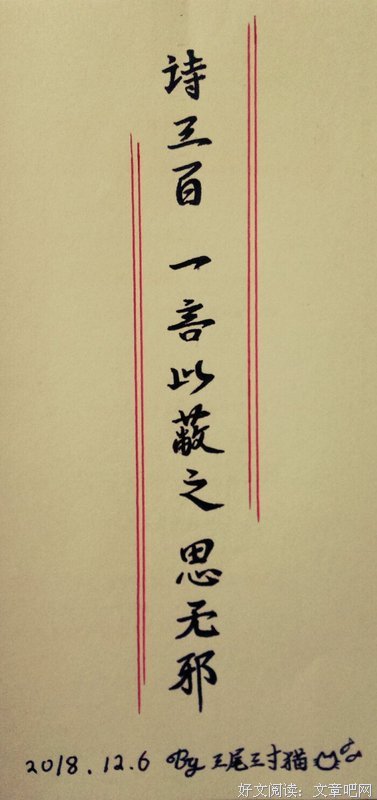 詩三百 一言以蔽之 思无邪
2018.12.6 By 三尾三寸猫
好文阅读：文章吧网